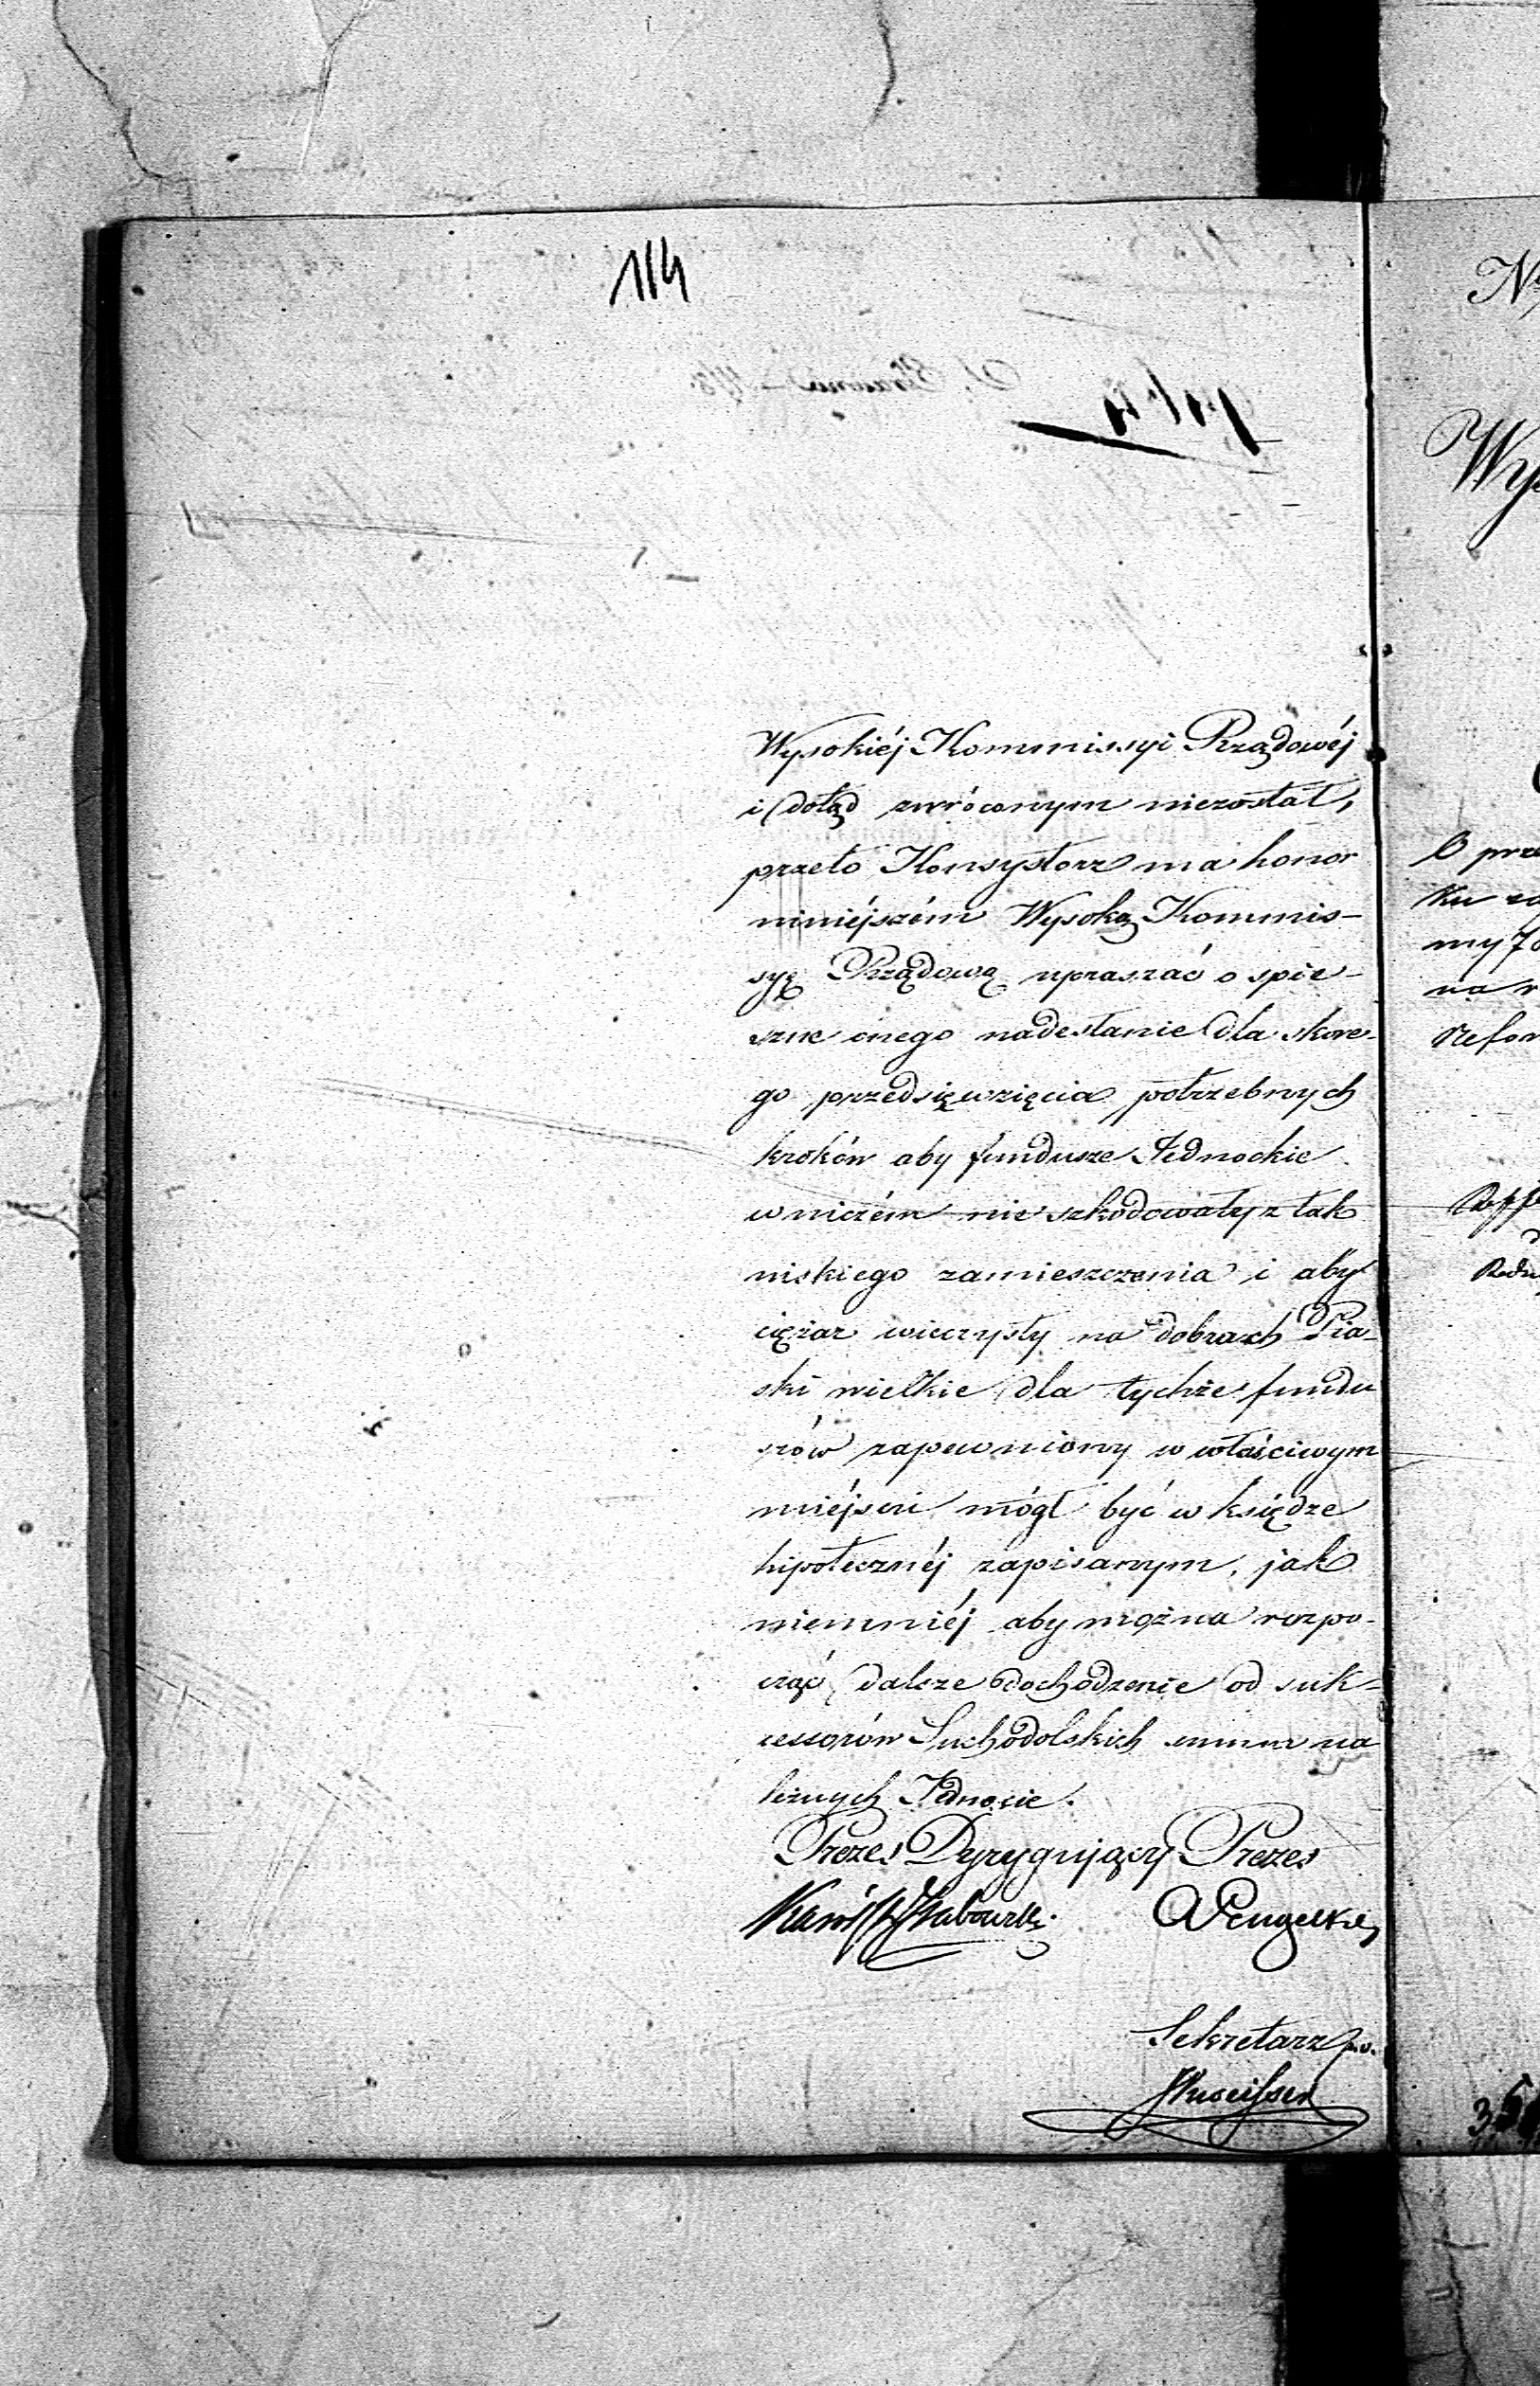 114
Wysokiéj Kommissyi Rządowéj
i dotąd zwróconym niezostał,
przeto Konsystorz ma honor
niniéjszém Wysoką Kommis-
syę Rządową upraszać o spie-
szne onego nadesłanie dla skore-
go przedsięwzięcia potrzebnych
kroków aby fundusze Jednockie
w niczém nie szkodowały z tak
niskiego zamieszczenia i aby
ciężar wieczysty na dobrach Pia-
ski wielkie dla tychże fundu
szów zapewniony w właściwym
miéjscu mógł być w księdze
hipotecznéj zapisanym, jak
niemniéj aby można rozpo-
cząć dalsze dochodzenie od suk-
cessorów Suchodolskich summ na
leżnych Jednocie.
Prezes Dyrygujący Prezes
Karól
Sekretarz p.o.
Wyp
O prze
my
na r
Refor